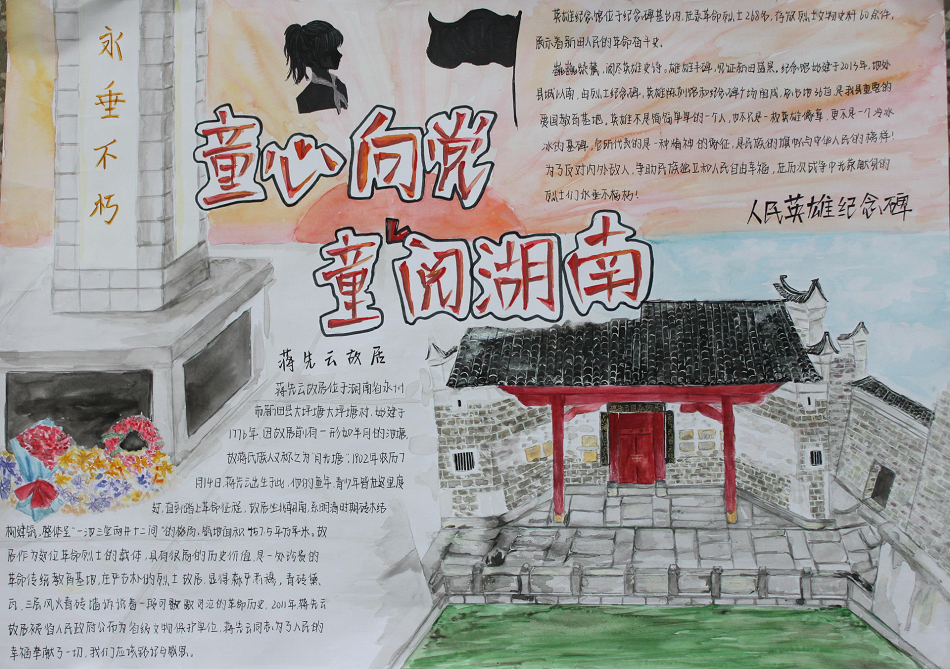 永垂不朽
童心向党
童阅湖南
英雄纪念馆位于纪念碑基长内,在录革命烈士268名,存放烈士文物史料60余件,
展示着新田人民的革命奋斗史。
巍巍铙鳌,阅尽英雄史诗。雄雄丰碑,见证新田盛景。纪念馆始建于2015年,地处
县城以南,由烈士纪念碑、英雄陈列馆和纪念碑广场组成,
爱国教育基地。英雄不是简简单单的一个人,也不只是一枚英雄徽章,更不是一个冷冰
冰的墓碑,它所代表的是一种精神的象征,是民族的旗帜与中华人民的榜样!
为了反对内外敌人,争取民族独立和人民自由幸福,在历次战争中光荣献身的
烈士们永垂不朽!
人民英雄纪念碑
蒋先云故居
蒋先云故居位于湖南省永州
市新田县大坪塘大坪塘村,始建于
1776年,因故居前有一形如半月的池塘,
故蒋氏族人又称之为“月光塘”;1902年农历7
月14日,蒋先云出生于此,他的童年、青少年皆在这里度
过,直到踏上革命征程。故居坐北朝南,系明清时期砖木结
构建筑,整体呈“一汲三堂两井十二间”的格局,占地面积967.5平方米,故
居作为数位革命烈士的载体,具有很高的历史价值,是一处珍贵的
革命传统教育基地,在平古朴的烈士故居,显得
瓦、三层风火青砖墙诉说着一段可歌可泣的革命历史。2011年蒋先云
故居被省人民政府公布为省级文物保护单位,蒋先云同志为了人民的
幸福奉献了一切,我们应该铭记与感恩。